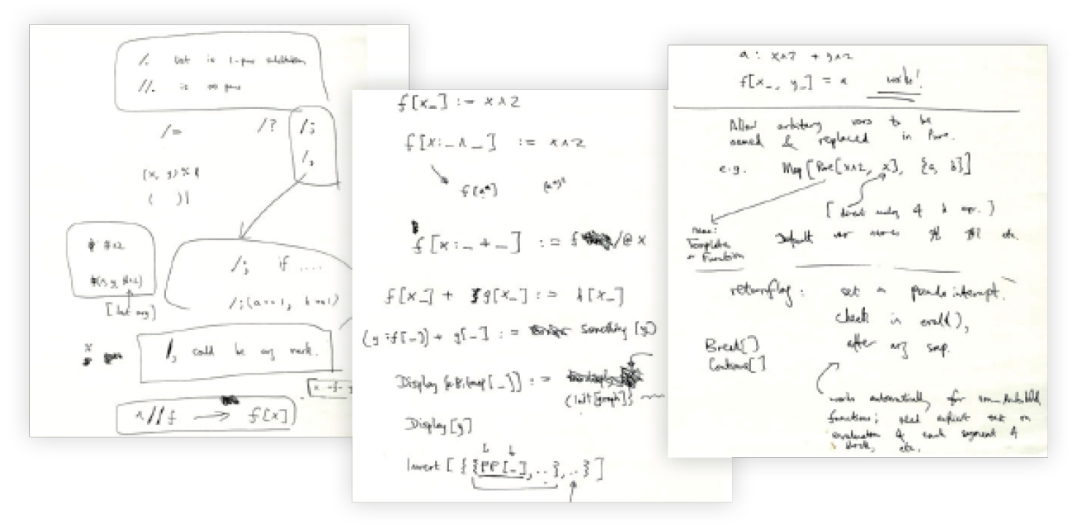 /. but is 1-pass substitution
//. is ∞ pass
/= /? /;
/,
(x, y) % &
( )|
# #^2
#(x, y, #^2)
[last arg]
/; if ....
/; (a==1, b==1)
/, could be arg mark.
x // f → f[x]
f[x_] := x^2
f[x:_^_] := x^2
f(a^a) (a^a)^2
f[x:_+_] := f /@ x
f[x_] + g[x_] := h[x_]
(y:f[_]) + g[_] := something [y]
Display [_]] :=
Display[g]
Invert [ { {PP[_], ..}, ..} ]
a : x^2 + y^2
f[x_, y_] = a works!
Allow arbitrary vars to be
named & replaced in Pure.
e.g. Map[Pure[x^2, x], {a, b}]
[ direct analog of λ expr. ]
name:
Template
or Function
Default var names # #1 etc.
returnflag : set a pseudo interrupt.
check in evall(),
after any smp.
Break[]
Continue[]
works automatically for
functions; need explicit test on
evaluation of each segment of
Block, etc.